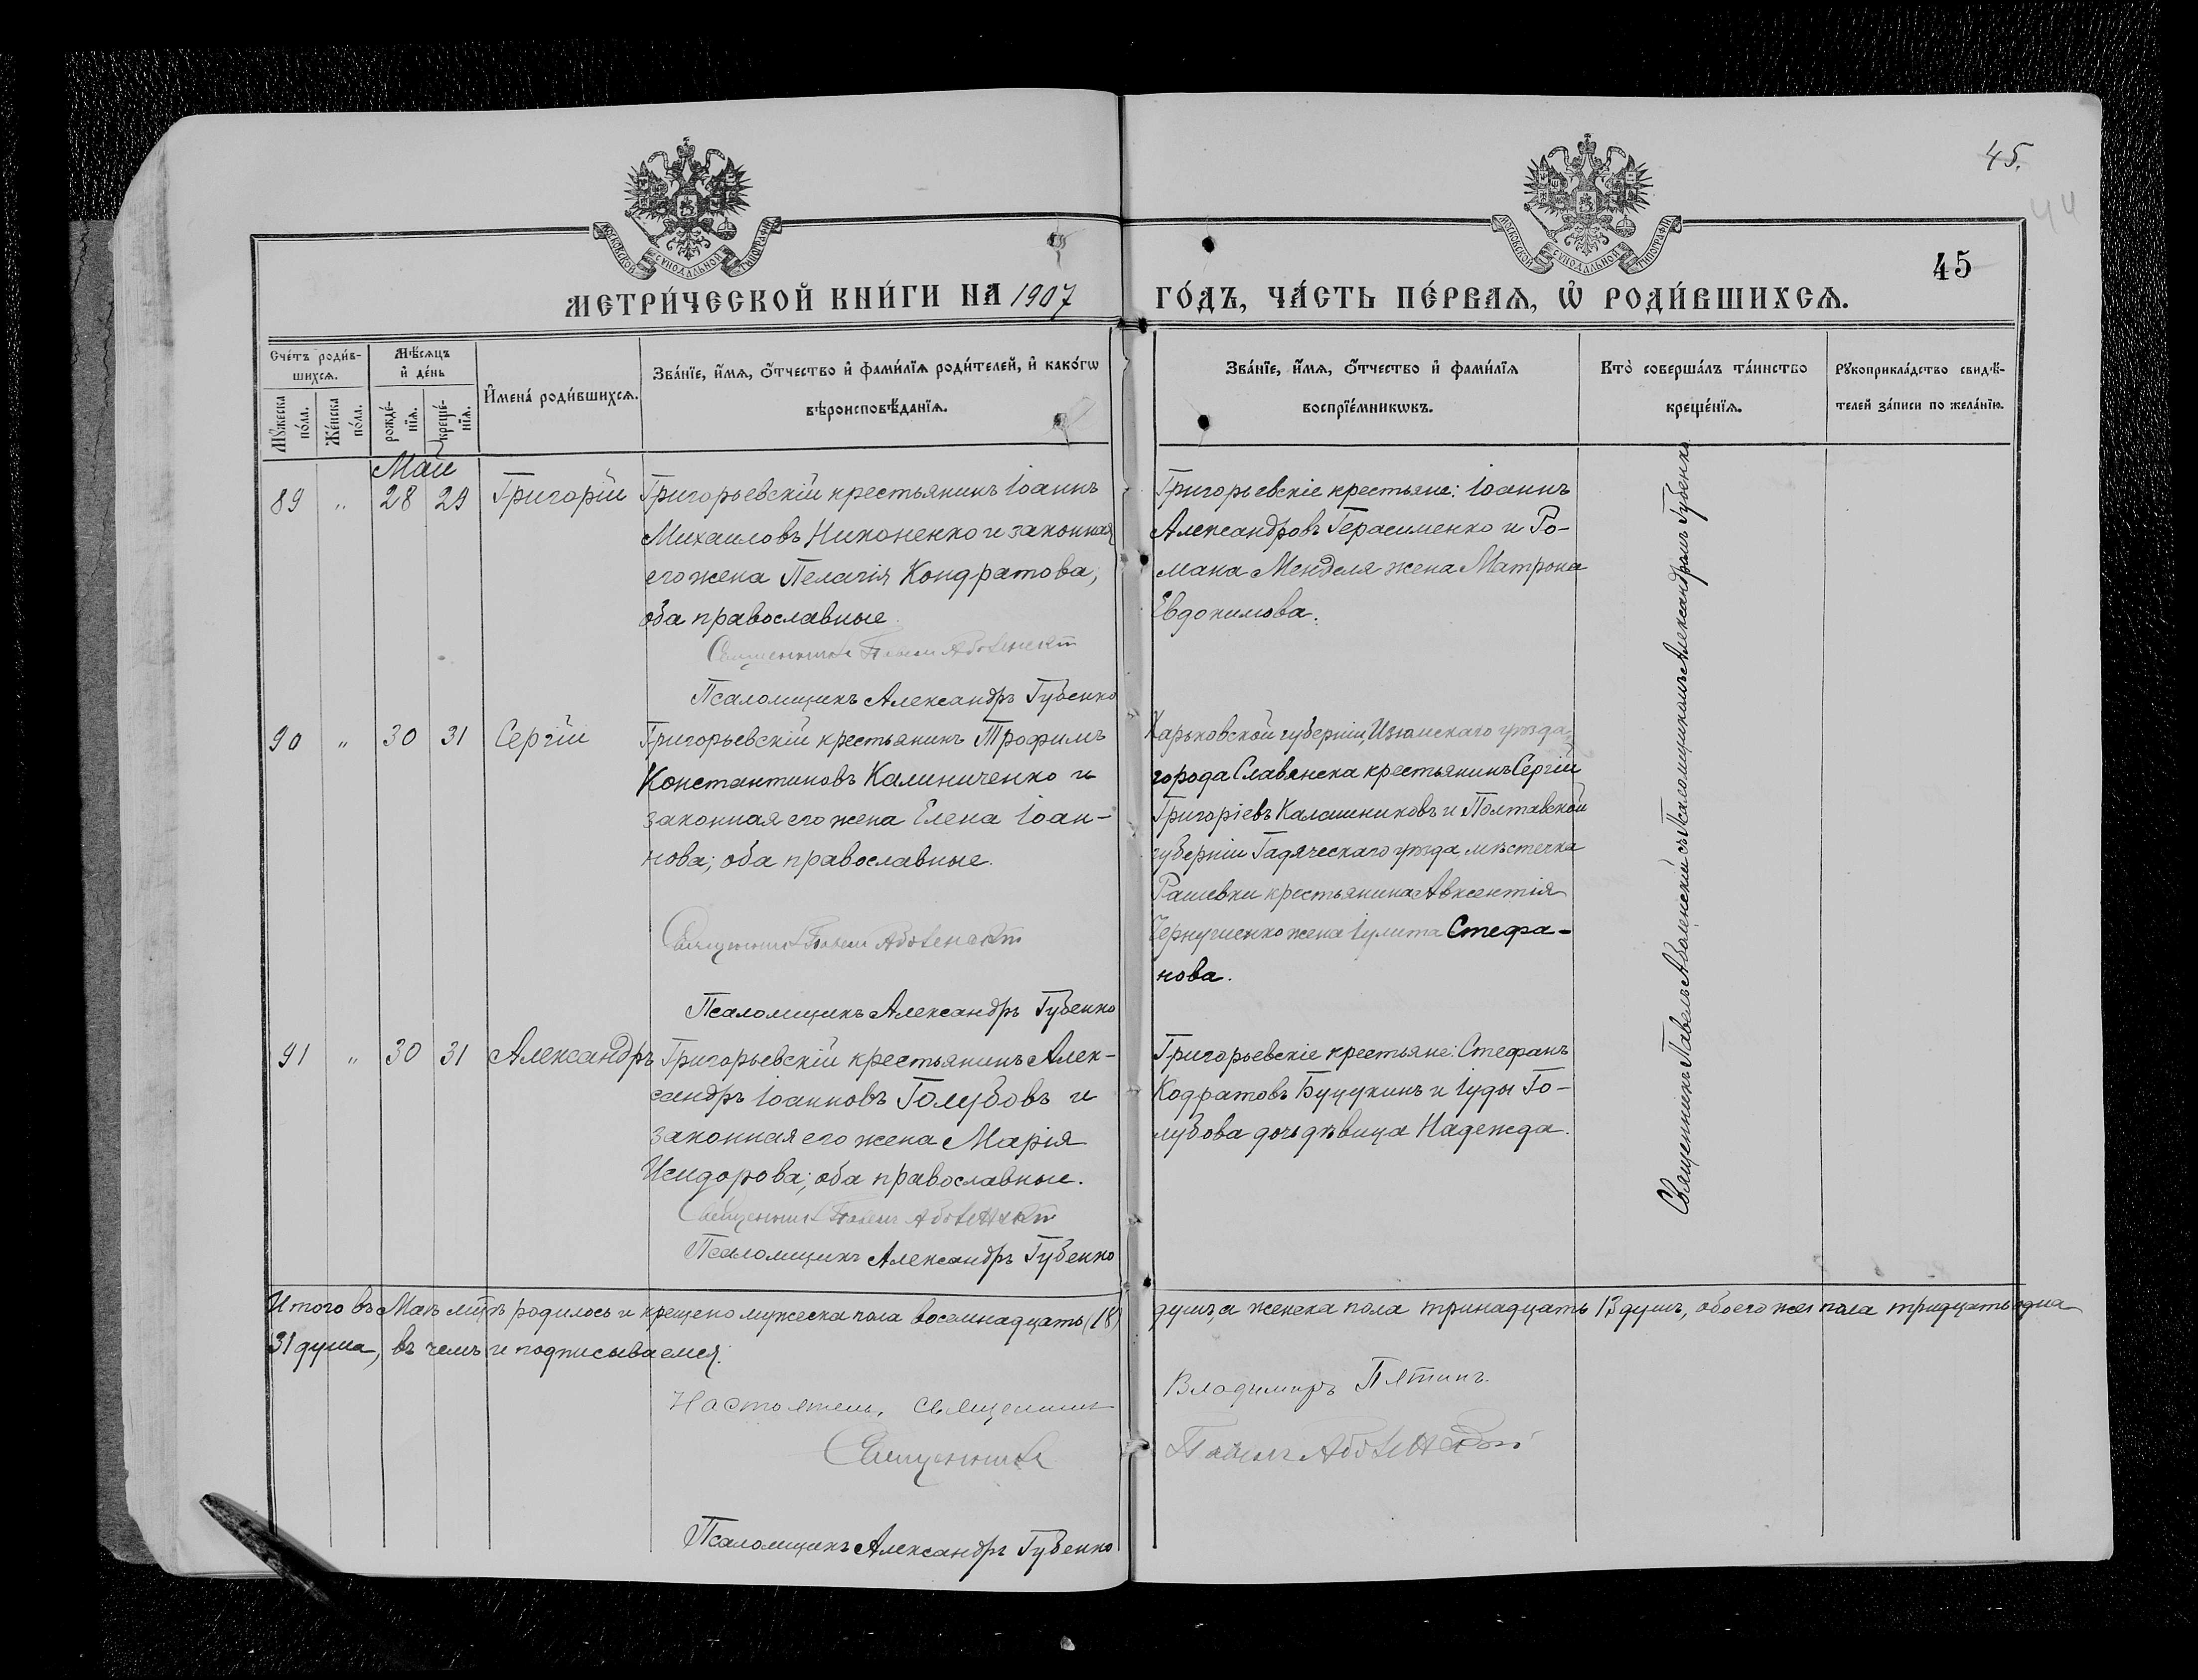 45.
44
45
МОСКОВСКОЙ СУНОДАЛЬНОЙ ТИПОГРАФІИ
МОСКОВСКОЙ СУНОДАЛЬНОЙ ТИПОГРАФІИ
МЕТРИ́ЧЕСКОЙ КНИ́ГИ НА 1907 ГО́ДЪ, ЧА́СТЬ ПЕ́РВАѦ, Ѽ РОДИ́ВШИХСѦ.
Сче́тъ роди́в-
шихсѧ.
Мꙋ́жеска по́ла.
Же́нска по́ла.
Мѣ́сѧцъ
и҆ де́нь
рожде́-
нїѧ.
креще́-
нїѧ.
И҆мена̀ роди́вшихсѧ.
Зва́нїе, и҆́мѧ, ѻ҆́тчество и҆ фами́лїѧ роди́телей, и҆ како́гѡ
вѣроисповѣ́данїѧ.
Зва́нїе, и҆́мѧ, ѻ҆́тчество и҆ фами́лїѧ
воспрїе́мникѡвъ.
Кто̀ соверша́лъ та́инство
креще́нїѧ.
Рꙋкоприкла́дство свидѣ́-
телей за́писи по жела́нїю.
Май
89 " 28 29 Григорій
Григорьевскій крестьянинъ Іоаннъ
Михаиловъ Никоненко и законная
его жена Пелагія Кондратова,
оба православные.
Священникъ Павелъ Аболенскій
Псаломщикъ Александръ Губенко
Григорьевскіе крестьяне: Іоаннъ
Александровъ Герасименко и Ро-
мана Менделя жена Матрона
Евдокимова.
90 " 30 31 Сергій
Григорьевскій крестьянинъ Трофимъ
Константиновъ Калиниченко и
законная его жена Елена Іоан-
нова; оба православные.
Священникъ Павелъ Аболенскій
Псаломщикъ Александръ Губенко
Харьковской губерніи, Изюмскаго уѣзда,
города Славянска крестьянинъ Сергій
Григоріевъ Калашниковъ и Полтавской
губерніи Гадяческаго уѣзда, мѣстечка
Рашевки крестьянина Авксентія
жена Іулита Стефа-
нова.
91 " 30 31 Александръ
Григорьевскій крестьянинъ Алек-
сандръ Іоанновъ Голубовъ и
законная его жена Марія
Исидорова; оба православные.
Священникъ Павелъ Аболенскій
Псаломщикъ Александръ Губенко
Григорьевскіе крестьяне: Стефанъ
Кодратовъ Буцукинъ и Іуды Го-
лубова дочь дѣвица Надежда.
Священникъ Павелъ Аболенскій съ Псаломщикомъ Александромъ Губенко
Итого въ Маѣ мцѣ родилось и крещено мужеска пола восемнадцать (18) душъ, а женска пола тринадцать 13 душъ, обоего же пола тридцать одна
31 душа, въ чемъ и подписываемся:
Настоятель, священникъ Владимиръ Пятинъ.
Священникъ Павелъ Аболенскій
Псаломщикъ Александръ Губенко